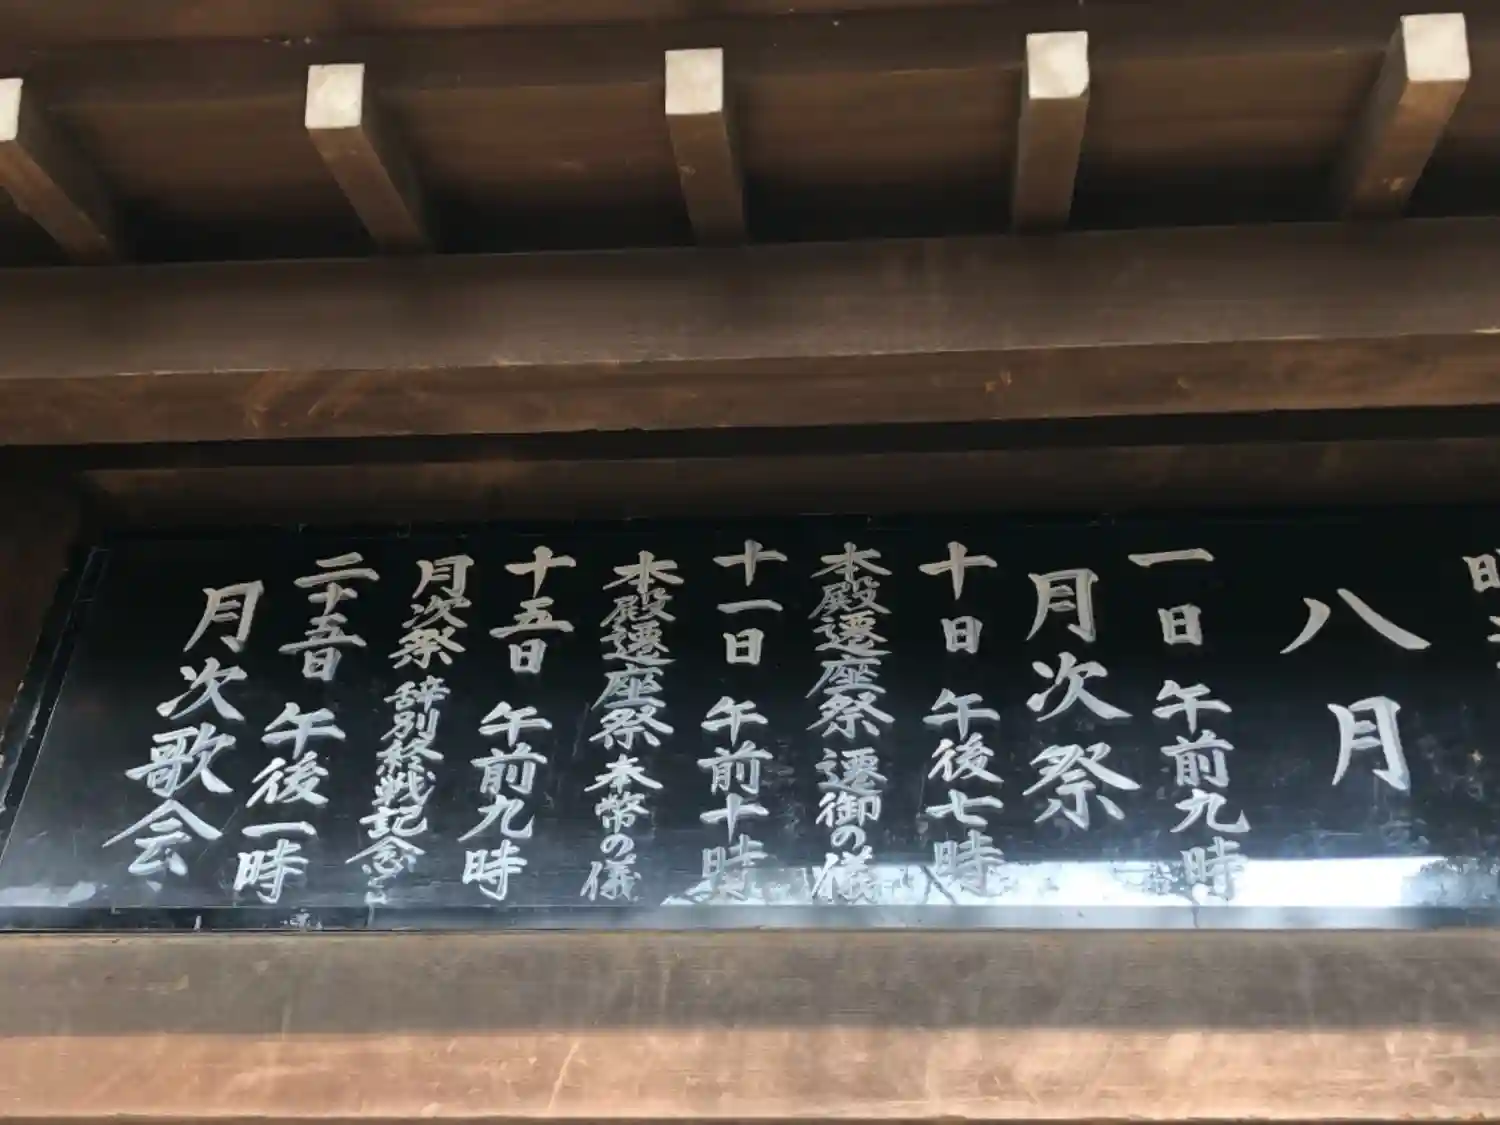 八月
一日 午前九時
月次祭
十日 午後七時
本殿遷座祭 遷御の儀
十一日 午前十時
本殿遷座祭 奉幣の儀
十五日 午前九時
月次祭 辞別終戦記念
二十五日 午後一時
月次歌会